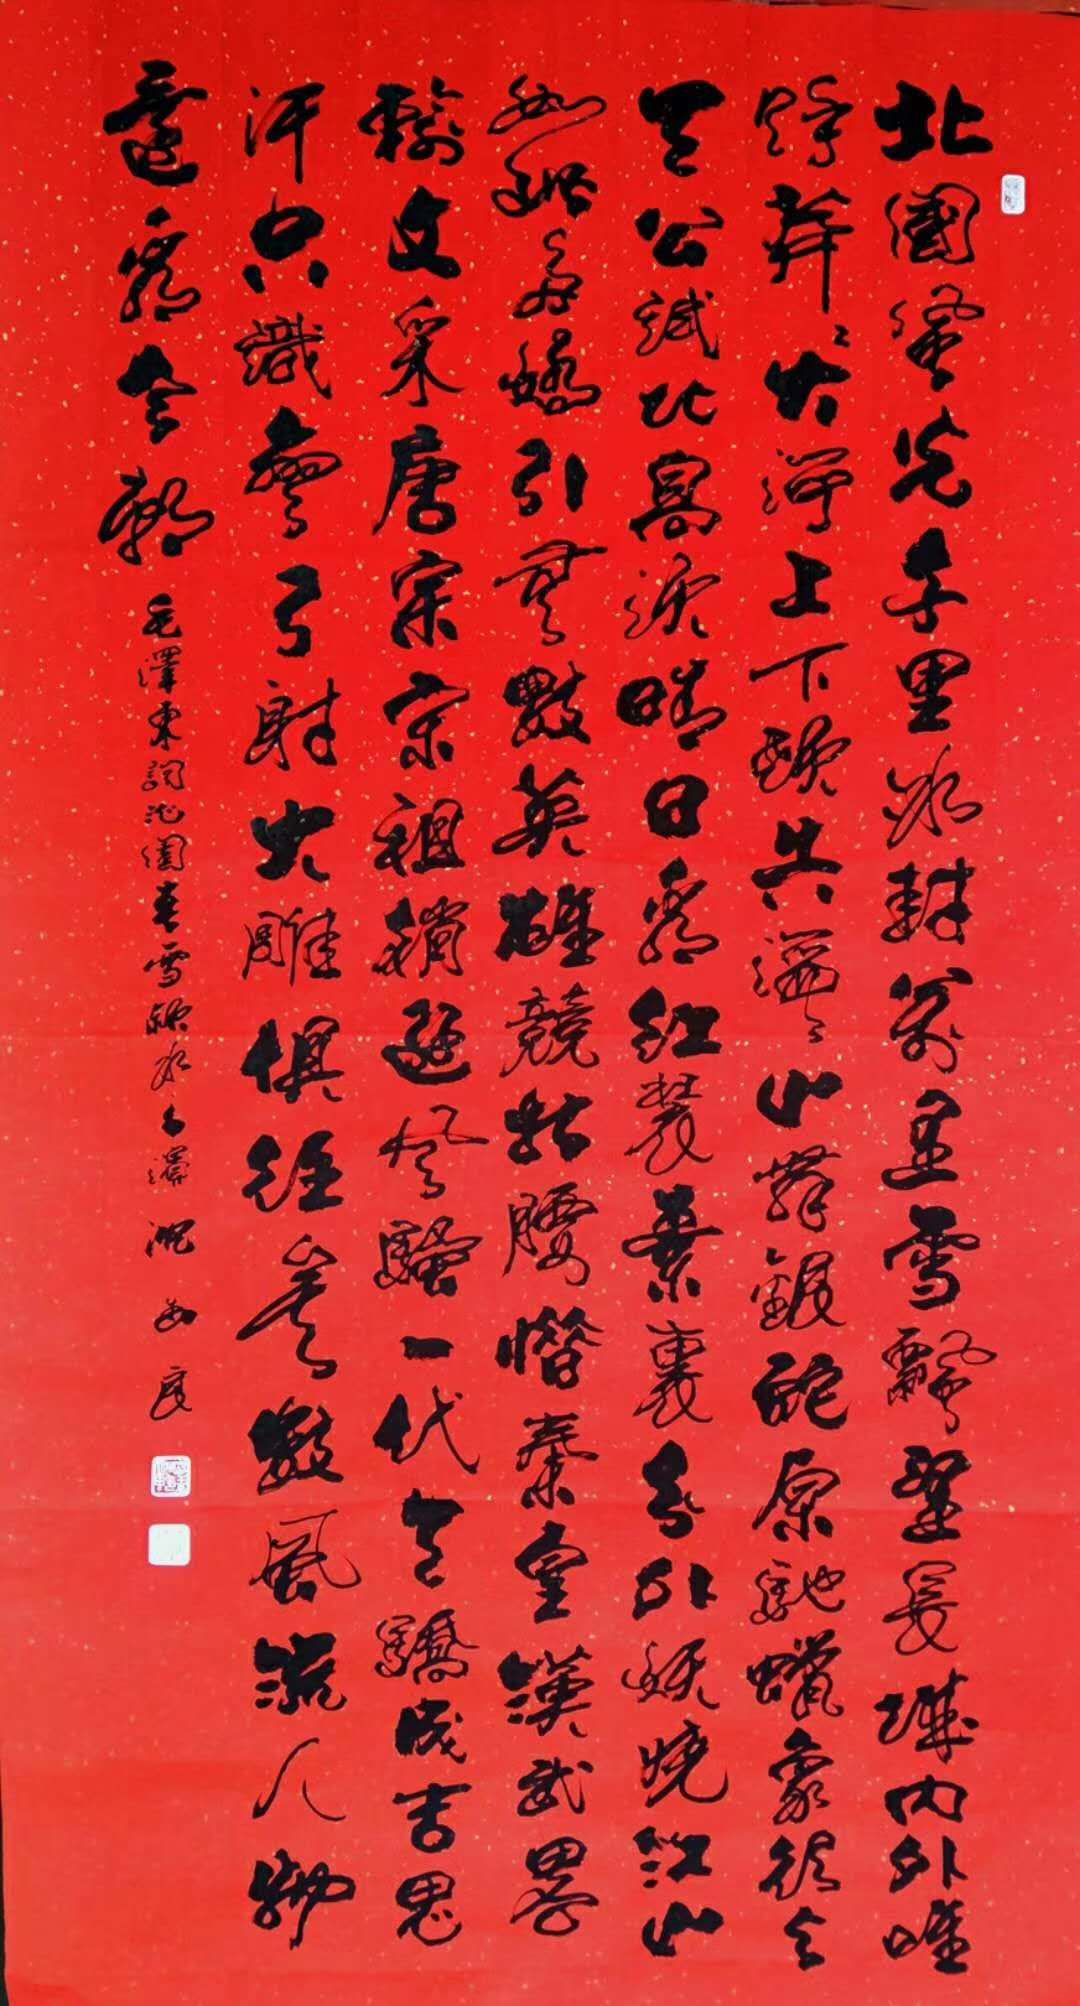 北國風光千里冰封萬里雪飄望長城內外唯
餘莽〻大河上下頓失滔〻山舞銀蛇原馳蠟象欲與
天公試比高須晴日看紅裝素裹分外妖嬈江山
如此多嬌引無數英雄競折腰惜秦皇漢武略
輸文采唐宗宋祖稍遜風騷一代天驕成吉思
汗只識彎弓射大雕俱往矣數風流人物
還看今朝
毛澤東詞沁園春雪